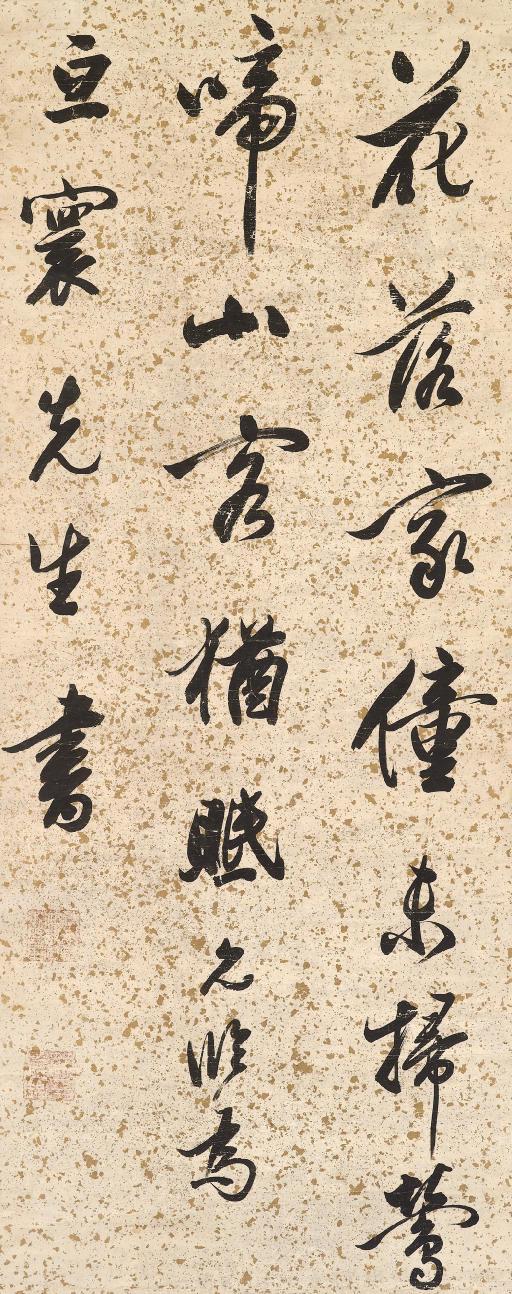 花落家僮未掃鶯
啼山客猶眠允明為
亘寰先生書